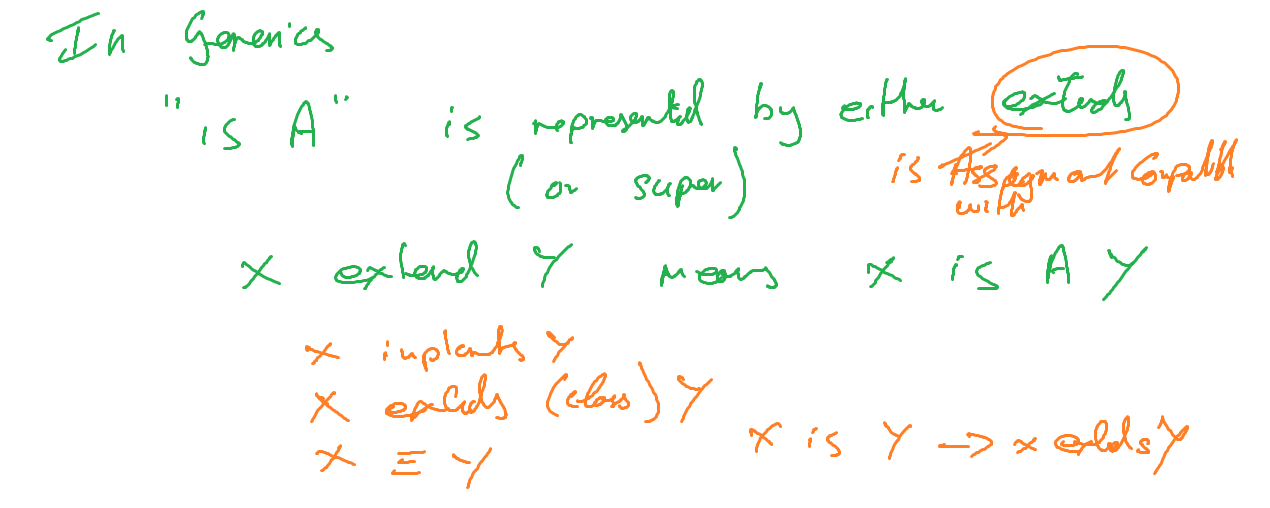 In Generics
"is A" is represented by either extends
(or super)
is Assignment Compatible
with
X extend Y means X is A Y
X implements Y
X extends (class) Y
X ≡ Y
X is Y → X extends Y